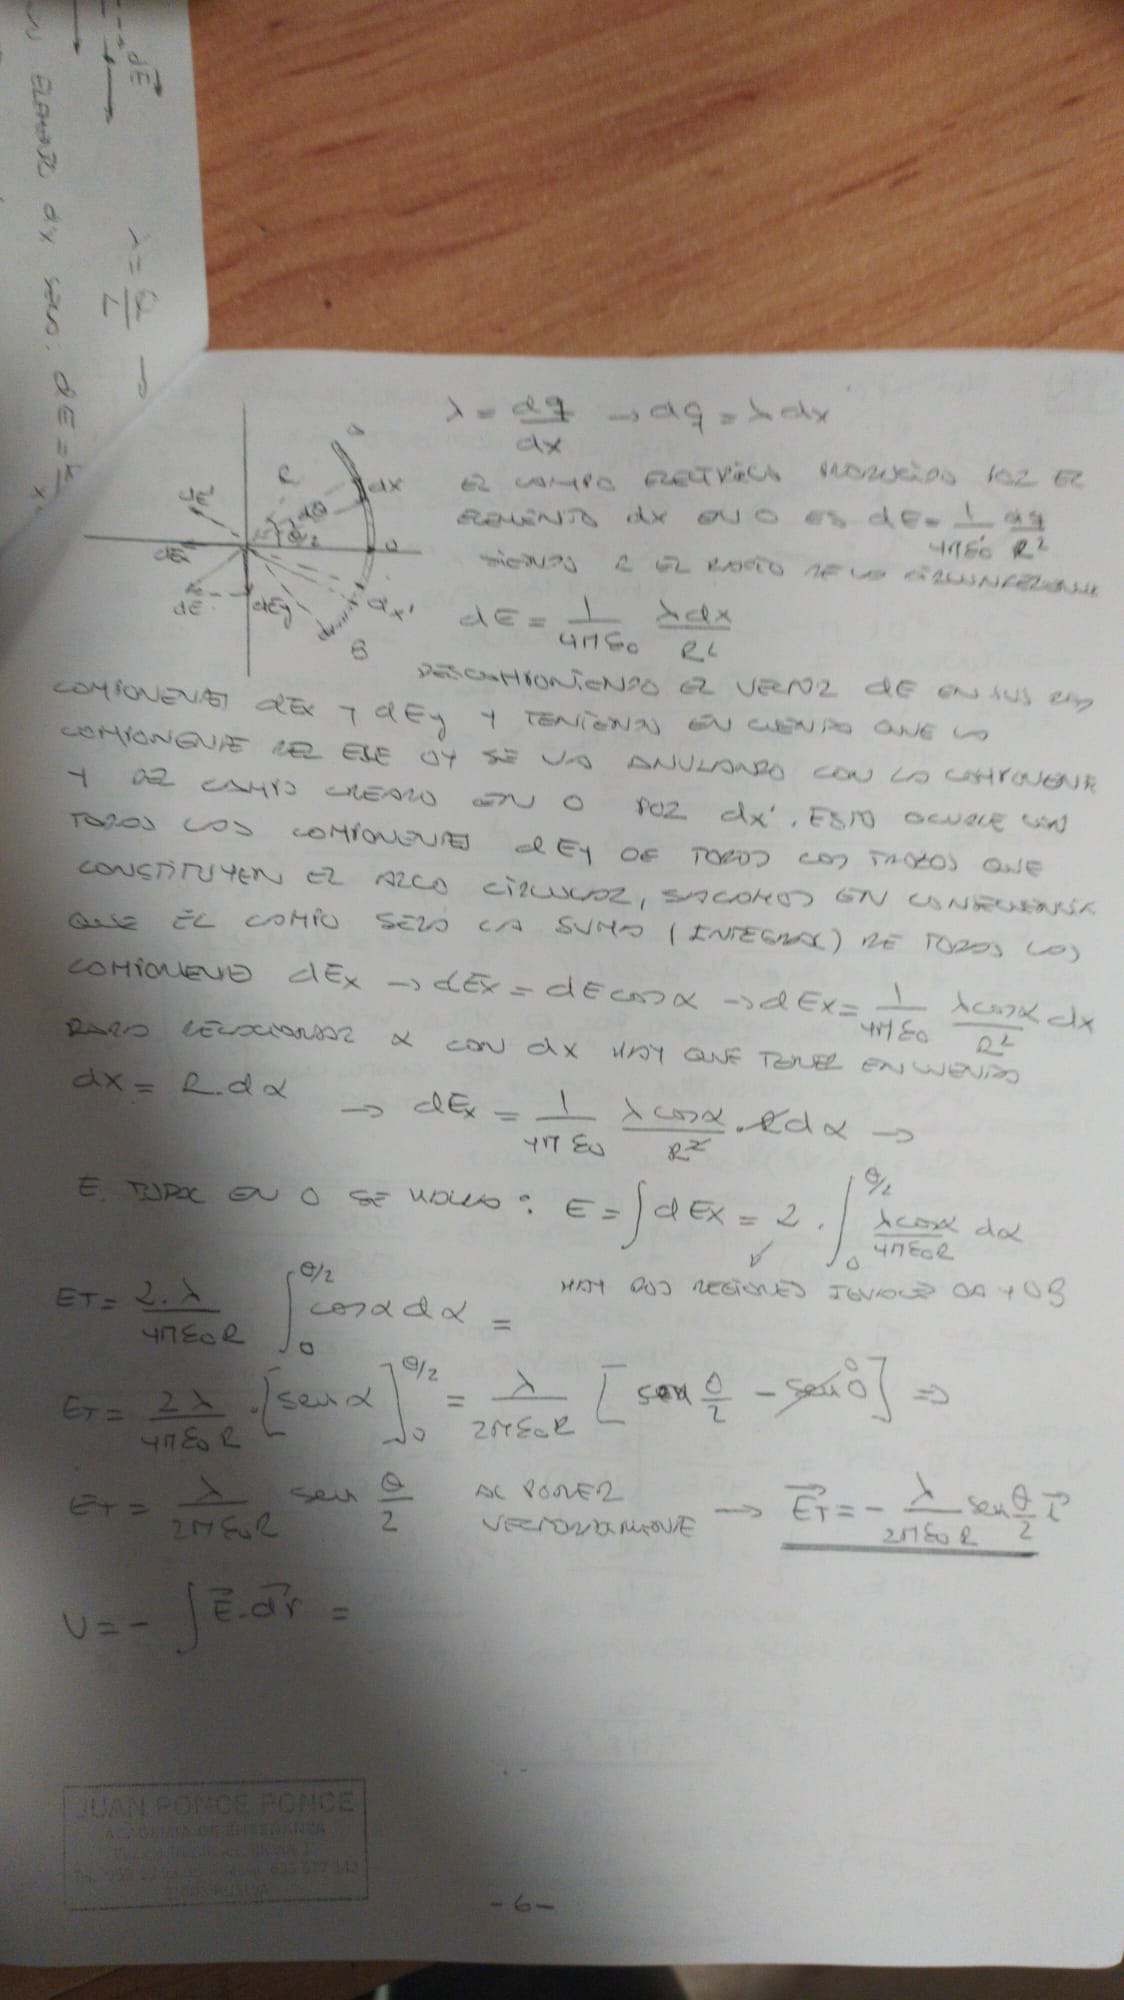 dE
λ = Q/L →
UN ELEMENTO dx SERÁ: dE = K
λ = dq/dx → dq = λ dx
EL CAMPO ELÉCTRICO PRODUCIDO POR EL
ELEMENTO dx EN O ES dE = 1/4πε0 dq/R²
SIENDO R EL RADIO DE LA CIRCUNFERENCIA
dE = 1/4πε0 λdx/R²
A
R
dx
dθ
dE
dEx
O
dE
dEy
dx'
B
DESCOMPONIENDO EL VECTOR dE EN SUS DOS
COMPONENTES dEx Y dEy Y TENIENDO EN CUENTA QUE LA
COMPONENTE DEL EJE OY SE VA ANULANDO CON LA COMPONENTE
Y DEL CAMPO CREADO EN O POR dx'. ESTO OCURRE CON
TODOS LOS COMPONENTES dEy DE TODOS LOS TROZOS QUE
CONSTITUYEN EL ARCO CIRCULAR, SACAMOS EN CONSECUENCIA
QUE EL CAMPO SERÁ LA SUMA (INTEGRAL) DE TODOS LOS
COMPONENTES dEx → dEx = dE cosα → dEx = 1/4πε0 λcosα/R² dx
PARA RELACIONAR α CON dx HAY QUE TENER EN CUENTA
dx = R.dα → dEx = 1/4πε0 λ cosα/R² . R dα →
E. TOTAL EN O SE HALLA: E = ∫ dEx = 2 . ∫₀^θ/2 λcosα/4πε0R dα
HAY DOS REGIONES IGUALES OA Y OB
ET = 2.λ/4πε0R ∫₀^θ/2 cosα dα =
ET = 2λ/4πε0R . [sen α]₀^θ/2 = λ/2πε0R [sen θ/2 - sen 0] ⇒
ET = λ/2πε0R sen θ/2 AL PONER VECTORIALMENTE → ET = - λ/2πε0R sen θ/2 i
U = - ∫ E.dr =
JUAN PONCE PONCE
ACADEMIA DE ENSEÑANZA
-6-